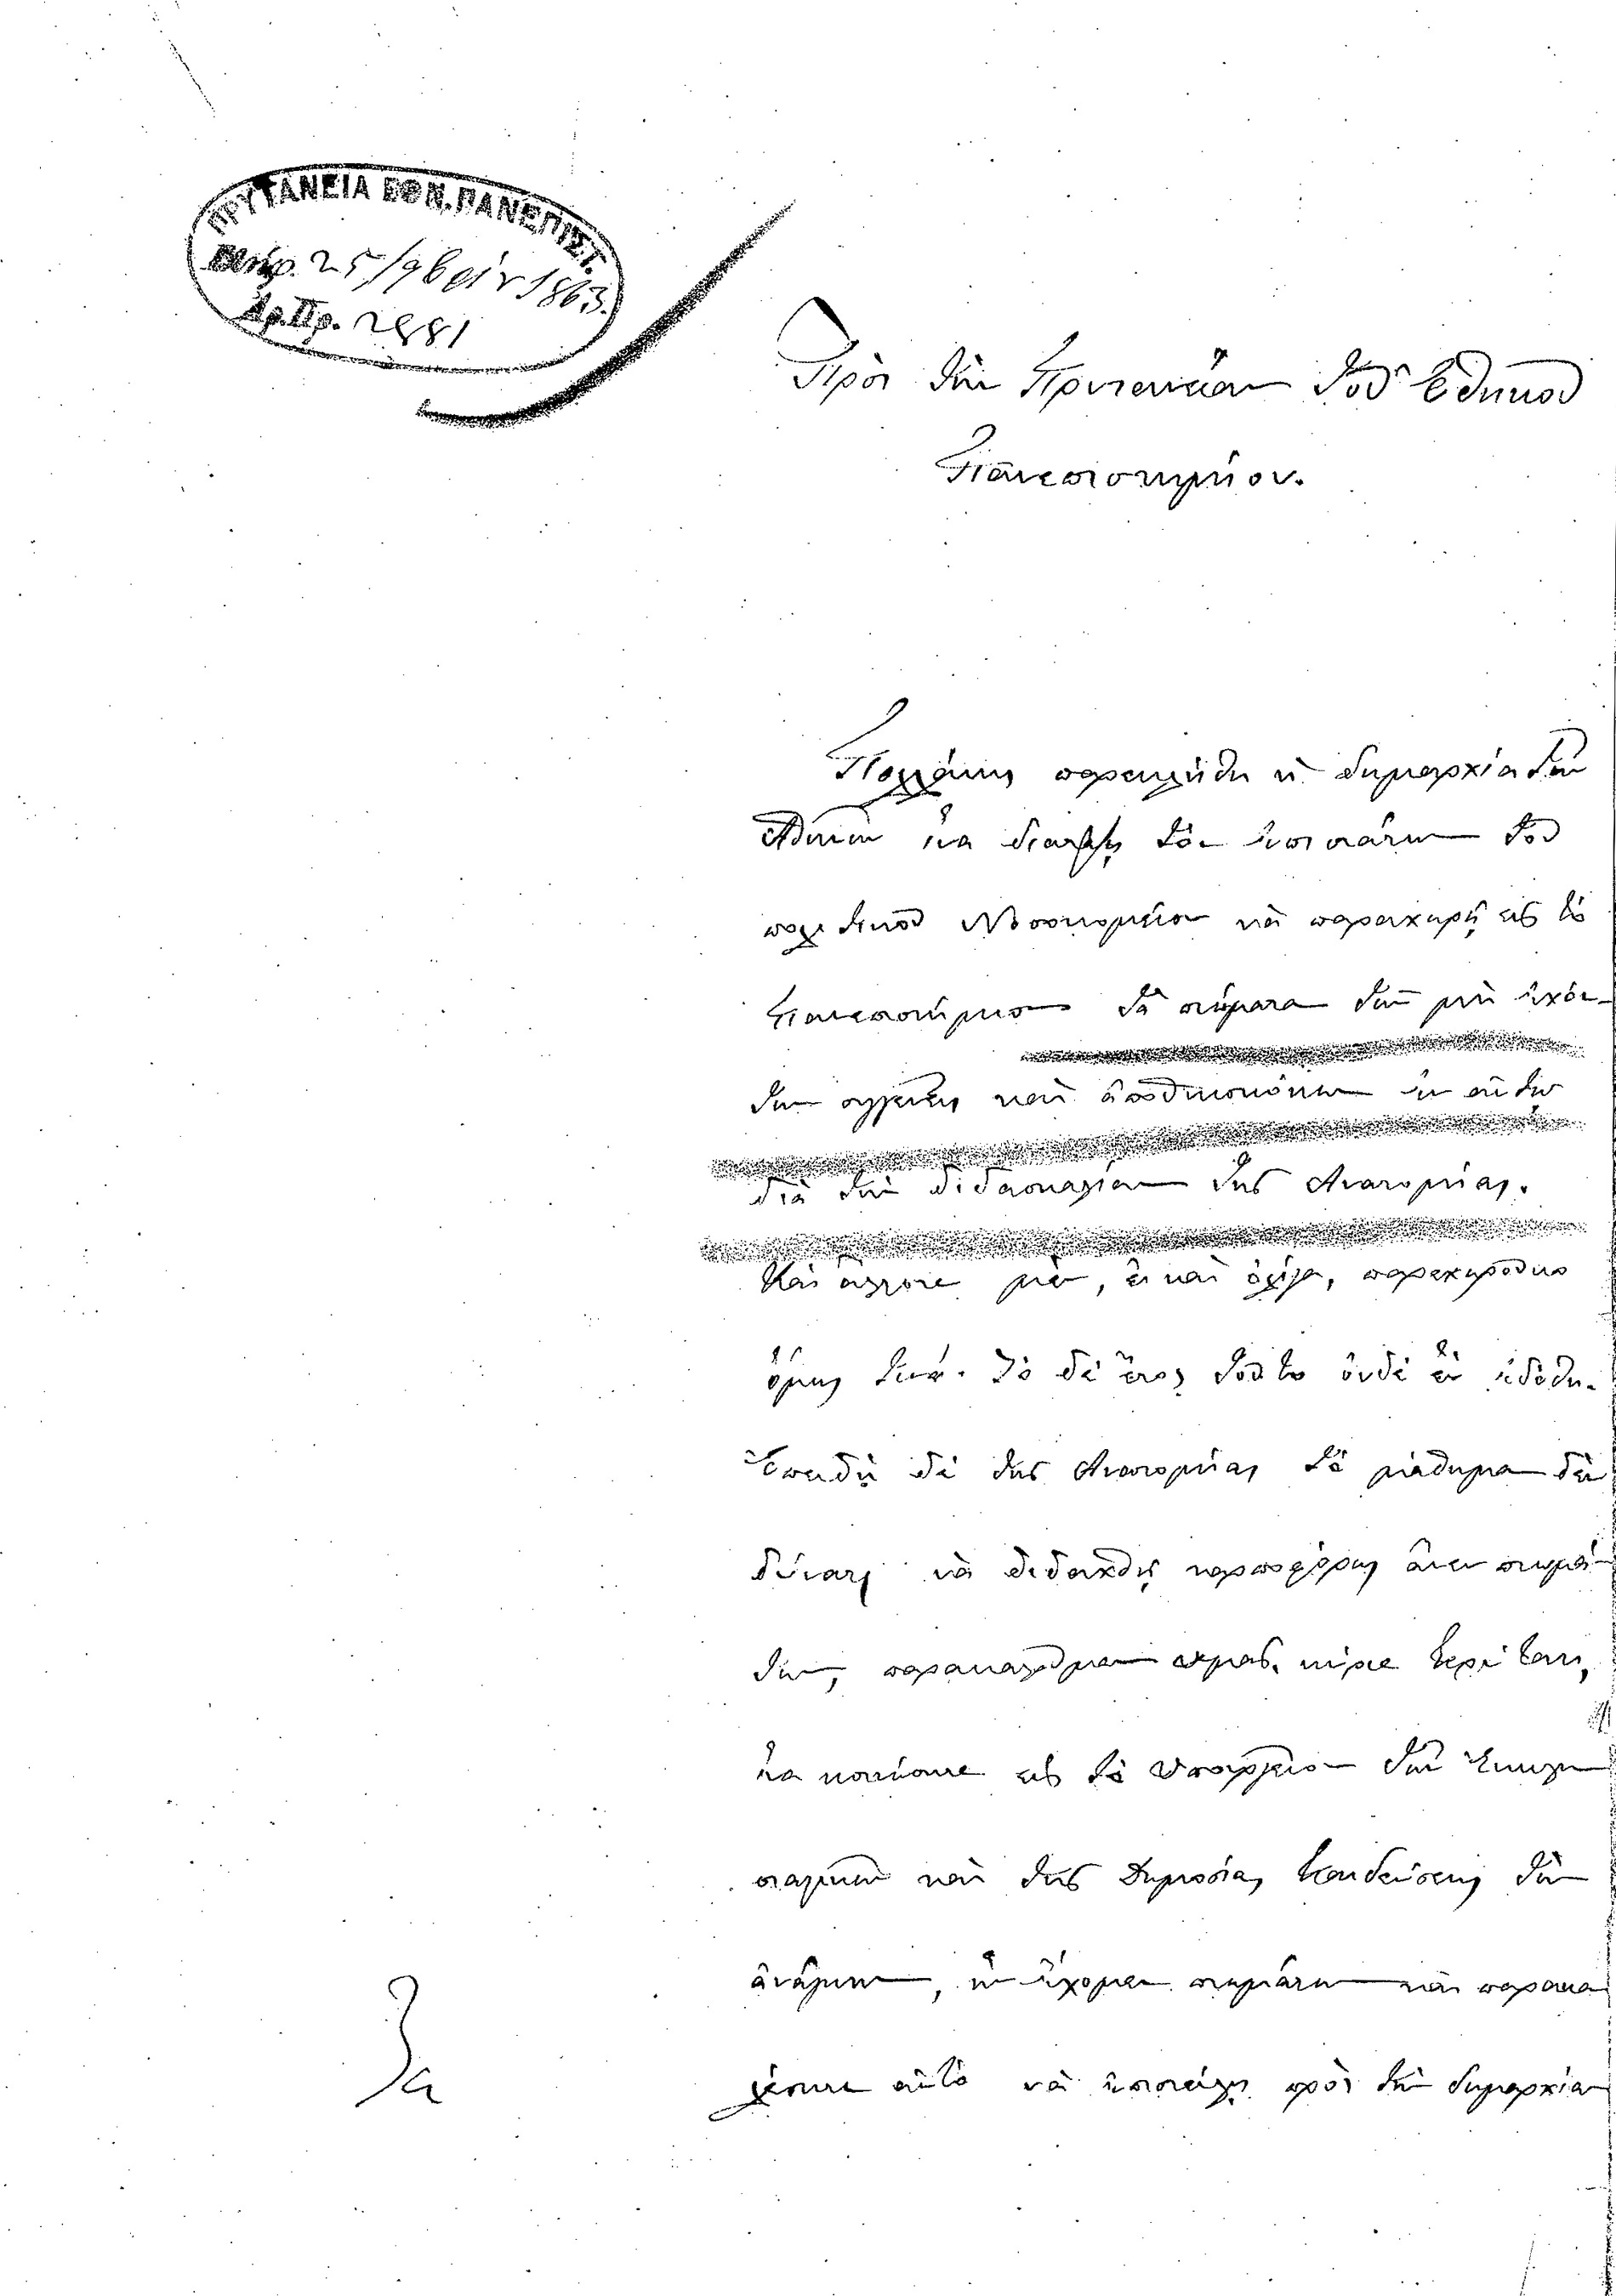 ΠΡΥΤΑΝΕΙΑ ΕΘΝ. ΠΑΝΕΠΙΣΤ.
25 / 9βρίου 1863.
Ἀρ. Πρ. 2881
Πρὸς τὴν Πρυτανείαν τοῦ Ἐθνικοῦ
Πανεπιστημίου.
Πολλάκις παρεκλήθη ἡ δημαρχία τῶν
Ἀθηνῶν ἵνα διατάξῃ τὸν ἐπιστάτην τοῦ
πολιτικοῦ Νοσοκομείου νὰ παραχωρῇ εἰς τὸ
Πανεπιστήμιον τὰ πτώματα τῶν μὴ ἐχόν-
των συγγενεῖς καὶ ἀποθνησκόντων ἐν αὐτῷ
διὰ τὴν διδασκαλίαν τῆς Ἀνατομίας.
Καὶ ἄλλοτε μὲν, εἰ καὶ ὀλίγα, παρεχωροῦντο
ὅμως τινά. Τὸ δὲ ἔτος τοῦτο οὐδὲ ἓν ἐδόθη.
Ἐπειδὴ δὲ τῆς Ἀνατομίας τὸ μάθημα
νὰ διδαχθῇ ἄνευ πτωμά-
των, παρακαλοῦμεν ὑμᾶς, κύριε Πρύτανι,
ἵνα εἰς τὸ Ὑπουργεῖον τῶν Ἐκκλη
σιαστικῶν καὶ τῆς Δημοσίας Ἐκπαιδεύσεως τὴν
ἀνάγκην, ἣν ἔχομεν πτωμάτων καὶ παρακα
λέσητε αὐτὸ νὰ πρὸς τὴν δημαρχίαν